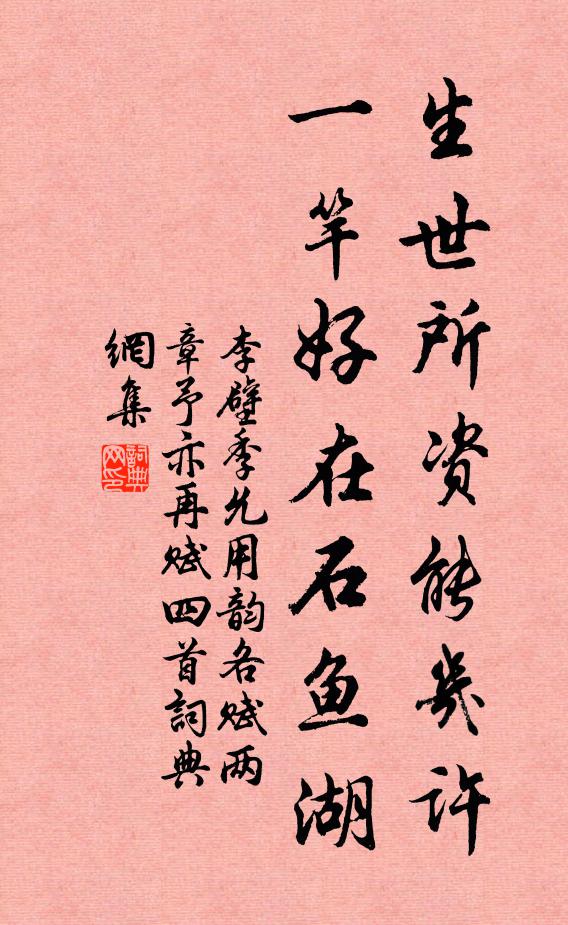 生世所资能几许
一竿好在石鱼湖
李壁季允用韵各赋两
章予亦再赋四首詞典
網集
詞典網印